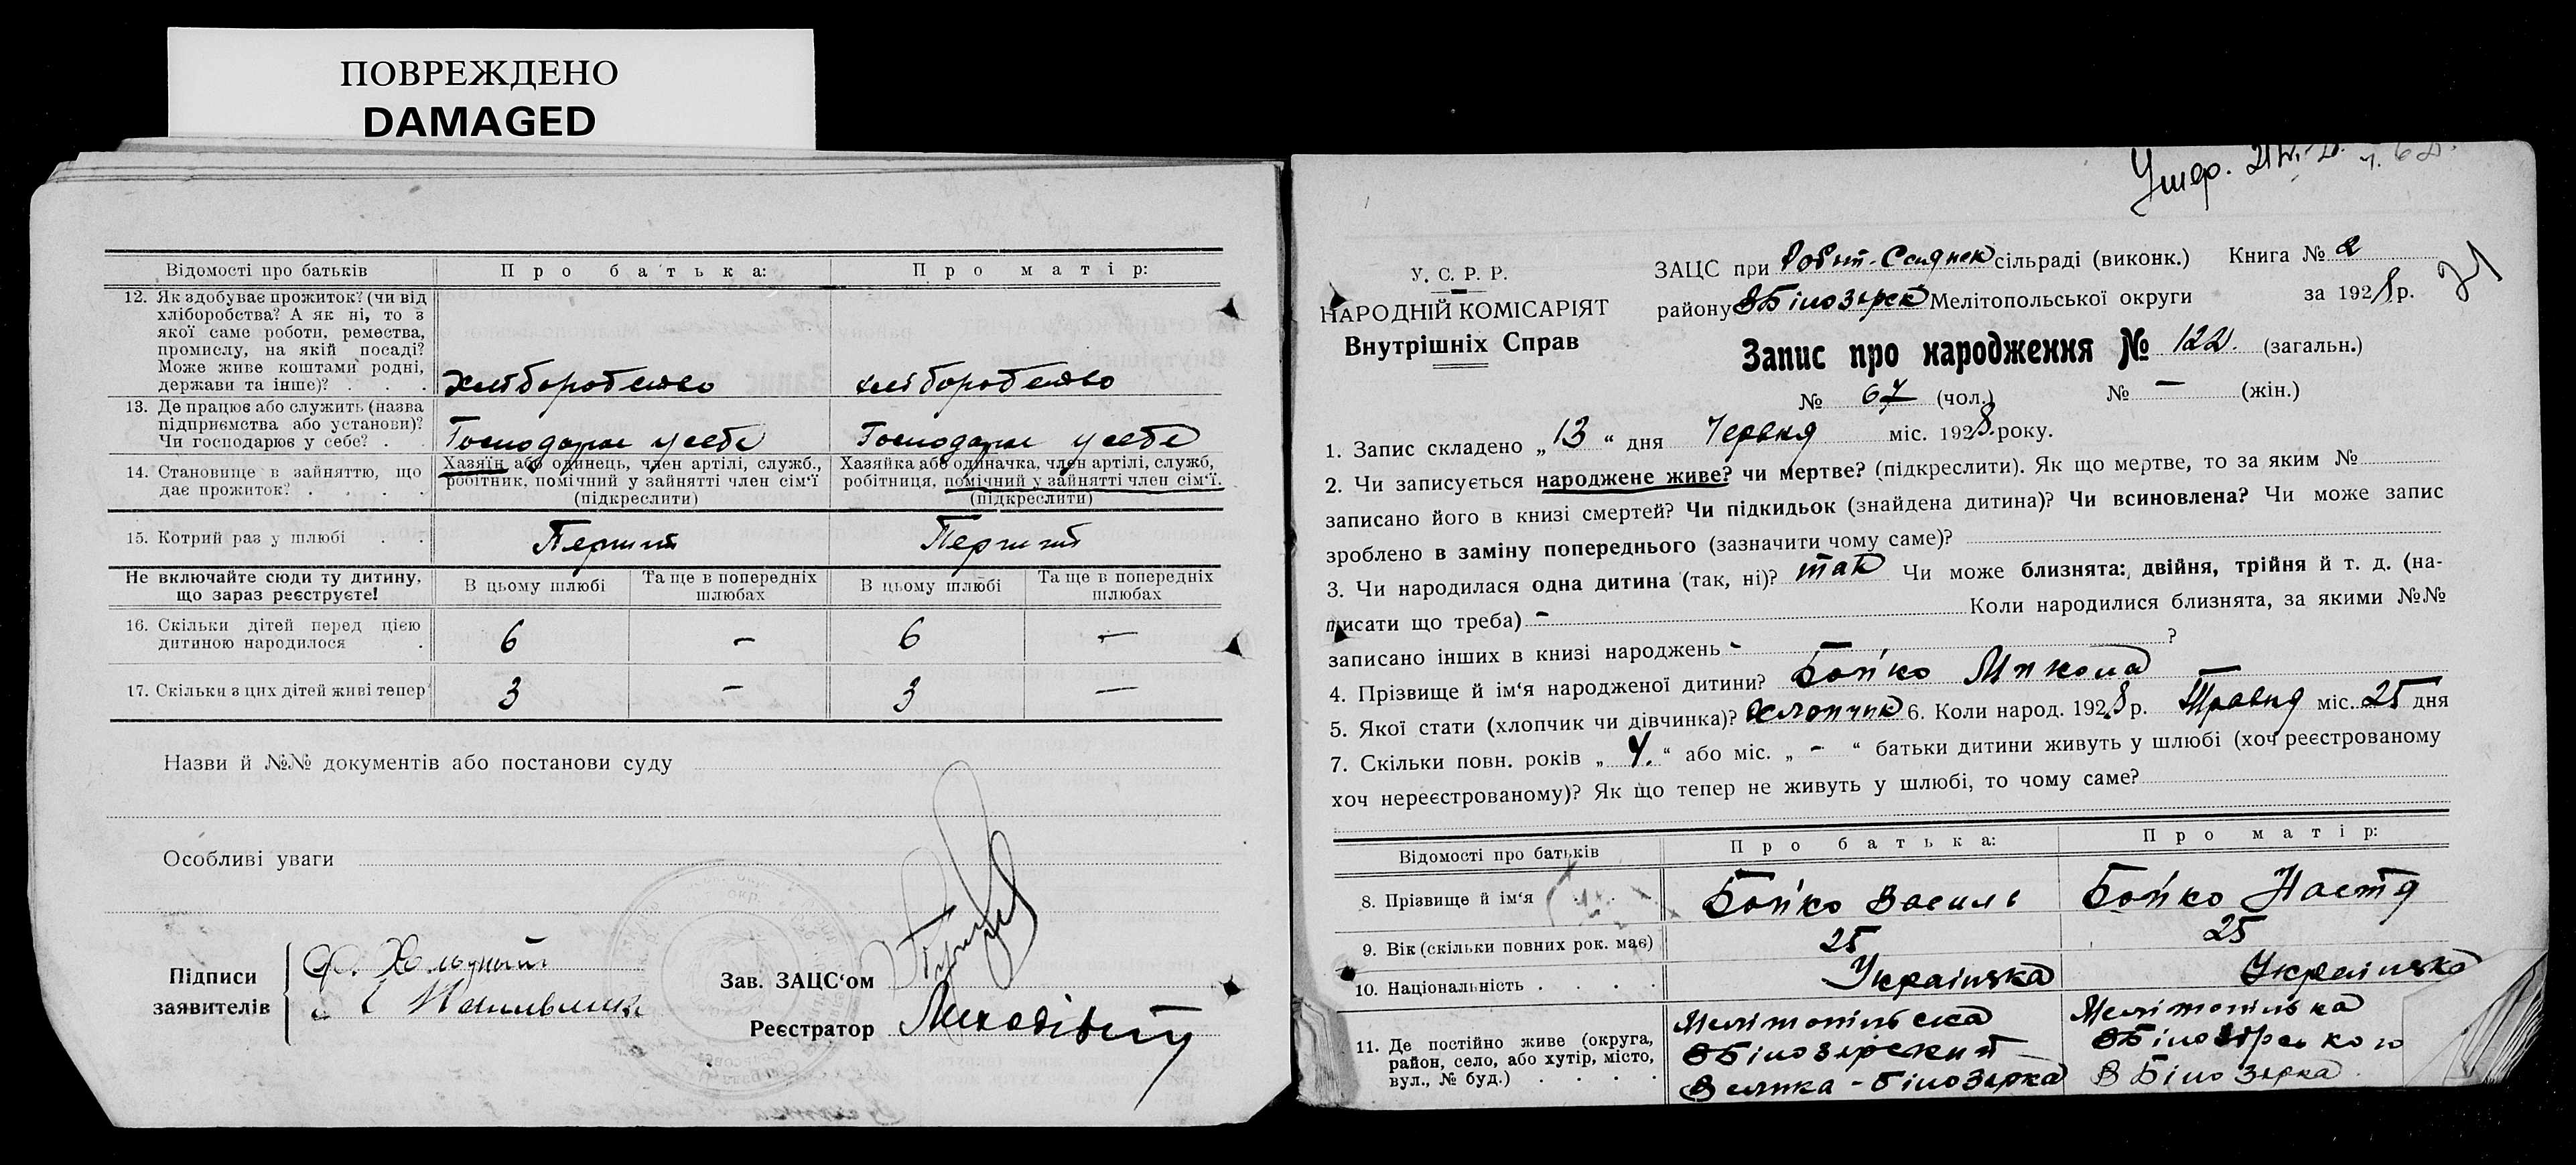 ПОВРЕЖДЕНО
DAMAGED
Відомості про батьків
Про батька:
Про матір:
12. Як здобуває прожиток? (чи від
хліборобства? А як ні, то з
якої саме роботи, ремества,
промислу, на якій посаді?
Може живе коштами родні,
держави та інше)? . . .
хліборобство
хліборобство
13. Де працює або служить (назва
підприємства або установи)?
Чи господарює у себе? . .
Господарює у себе
Господарює у себе
14. Становище в зайняттю, що
дає прожиток? . . . .
Хазяїн або одинець, член артілі, служб.,
робітник, помічний у зайнятті член сім'ї
(підкреслити)
Хазяйка або одиначка, член артілі, служб,
робітниця, помічний у зайнятті член сім'ї.
(підкреслити)
15. Котрий раз у шлюбі . .
Перший
Перший
Не включайте сюди ту дитину,
що зараз реєструєте!
В цьому шлюбі
Та ще в попередніх
шлюбах
В цьому шлюбі
Та ще в попередніх
шлюбах
16. Скільки дітей перед цією
дитиною народилося .
6 – 6 –
17. Скільки з цих дітей живі тепер
3 – 3 –
Назви й №№ документів або постанови суду
Особливі уваги
Підписи
заявителів
Зав. ЗАЦС'ом
Реєстратор
Умер.
У. С. Р. Р.
НАРОДНІЙ КОМІСАРІЯТ
Внутрішніх Справ
ЗАЦС при сільраді (виконк.) Книга № 2
району ВБілозерск Мелітопольської округи за 1928 р.
31
Запис про народження № 122. (загальн.)
№ 67 (чол.) № – (жін.)
1. Запис складено „13“ дня Червня міс. 1928. року.
2. Чи записується народжене живе? чи мертве? (підкреслити). Як що мертве, то за яким №
записано його в книзі смертей? Чи підкидьок (знайдена дитина)? Чи всиновлена? Чи може запис
зроблено в заміну попереднього (зазначити чому саме)?
3. Чи народилася одна дитина (так, ні)? так Чи може близнята: двійня, трійня й т. д. (на-
писати що треба) – Коли народилися близнята, за якими №№
записано інших в книзі народжень – ?
4. Прізвище й ім'я народженої дитини? Бойко Микола
5. Якої стати (хлопчик чи дівчинка)? Хлопчик 6. Коли народ. 1928 р. Травня міс. 25 дня
7. Скільки повн. років „4.“ або міс. „–“ батьки дитини живуть у шлюбі (хоч реєстрованому
хоч нереєстрованому)? Як що тепер не живуть у шлюбі, то чому саме?
Відомості про батьків
Про батька:
Про матір:
8. Прізвище й ім'я
Бойко Василь
Бойко Настя
9. Вік (скільки повних рок. має)
25
25
10. Національність . . . .
Українська
Українська
11. Де постійно живе (округа,
район, село, або хутір, місто,
вул., № буд.) . . . .
Мелітопільська
ВБілозерский
Велика-Білозерка
Мелітопільська
ВБілозерського
ВБілозерка